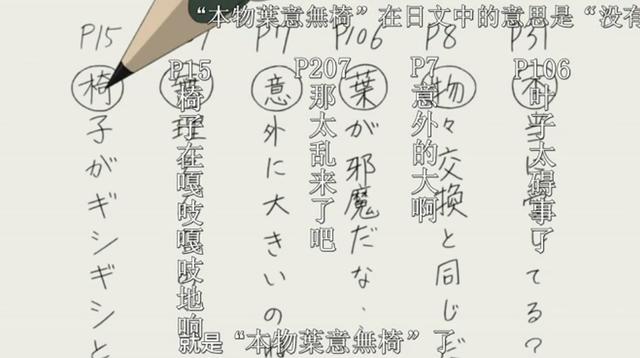 “本物葉意無椅”在日文中的意思是“没有
P31
本
てる?
P8
物々交換と同じだ
P106
葉が邪魔だな
P7
意外に大きいの
無理
P15
椅子がギシギシと
P106
叶子太碍事了
P7
意外的大啊
P207
那太乱来了吧
P15
椅子在嘎吱嘎吱地响
就是“本物葉意無椅”了